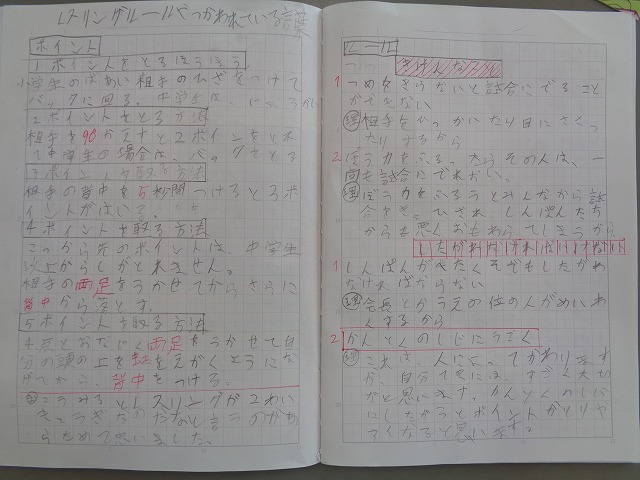 レスリングルールでつかわれている言葉
ポイント
1ポイントをとるほうほう
小学生のばあい相手のひざをつけて
バックに回る。中学生は、
2ポイントとる方法
相手を90かえすと2ポイントをとれ
て中学生の場合は、バックをとる
3ポイントを取る方法
相手の背中を5秒間つけると3ポ
イントがはいる。
4ポイントを取る方法
ここから先のポイントは、中学生
以上からしかとれません。
相手の両足をうかせてからさらに
背中から落とす。
5ポイントを取る方法
4点とおなじく両足をうかせて自
分の頭の上を えがくようにな
げてから、背中をつける。
こうみるとレスリングがこわい
きょうぎなのだなと言うのがあ
らためて思いました。
ルール
きけんなこと
1 つめをきらないと試合にでること
ができない
理 相手をひっかいたり目にささっ
たりするから
2 ぼう力をふるったらその人は、一
回も試合にでれない。
理 ぼう力をふるうとみんなから試
合を されしんぱんたち
からも悪くおもわれてしまうから
したがわなければいけない
1 しんぱんがぜったくぞでもしたがわ
なければならない
理 会長とかうえの位の人がめいれ
いするから
2 かんとくのしじにうごく
理 人によってかわりますが
が自分てきには、すごく大切
だと思います。かんとくのしじ
にしたがうとポイントがとりや
すくなると思います。